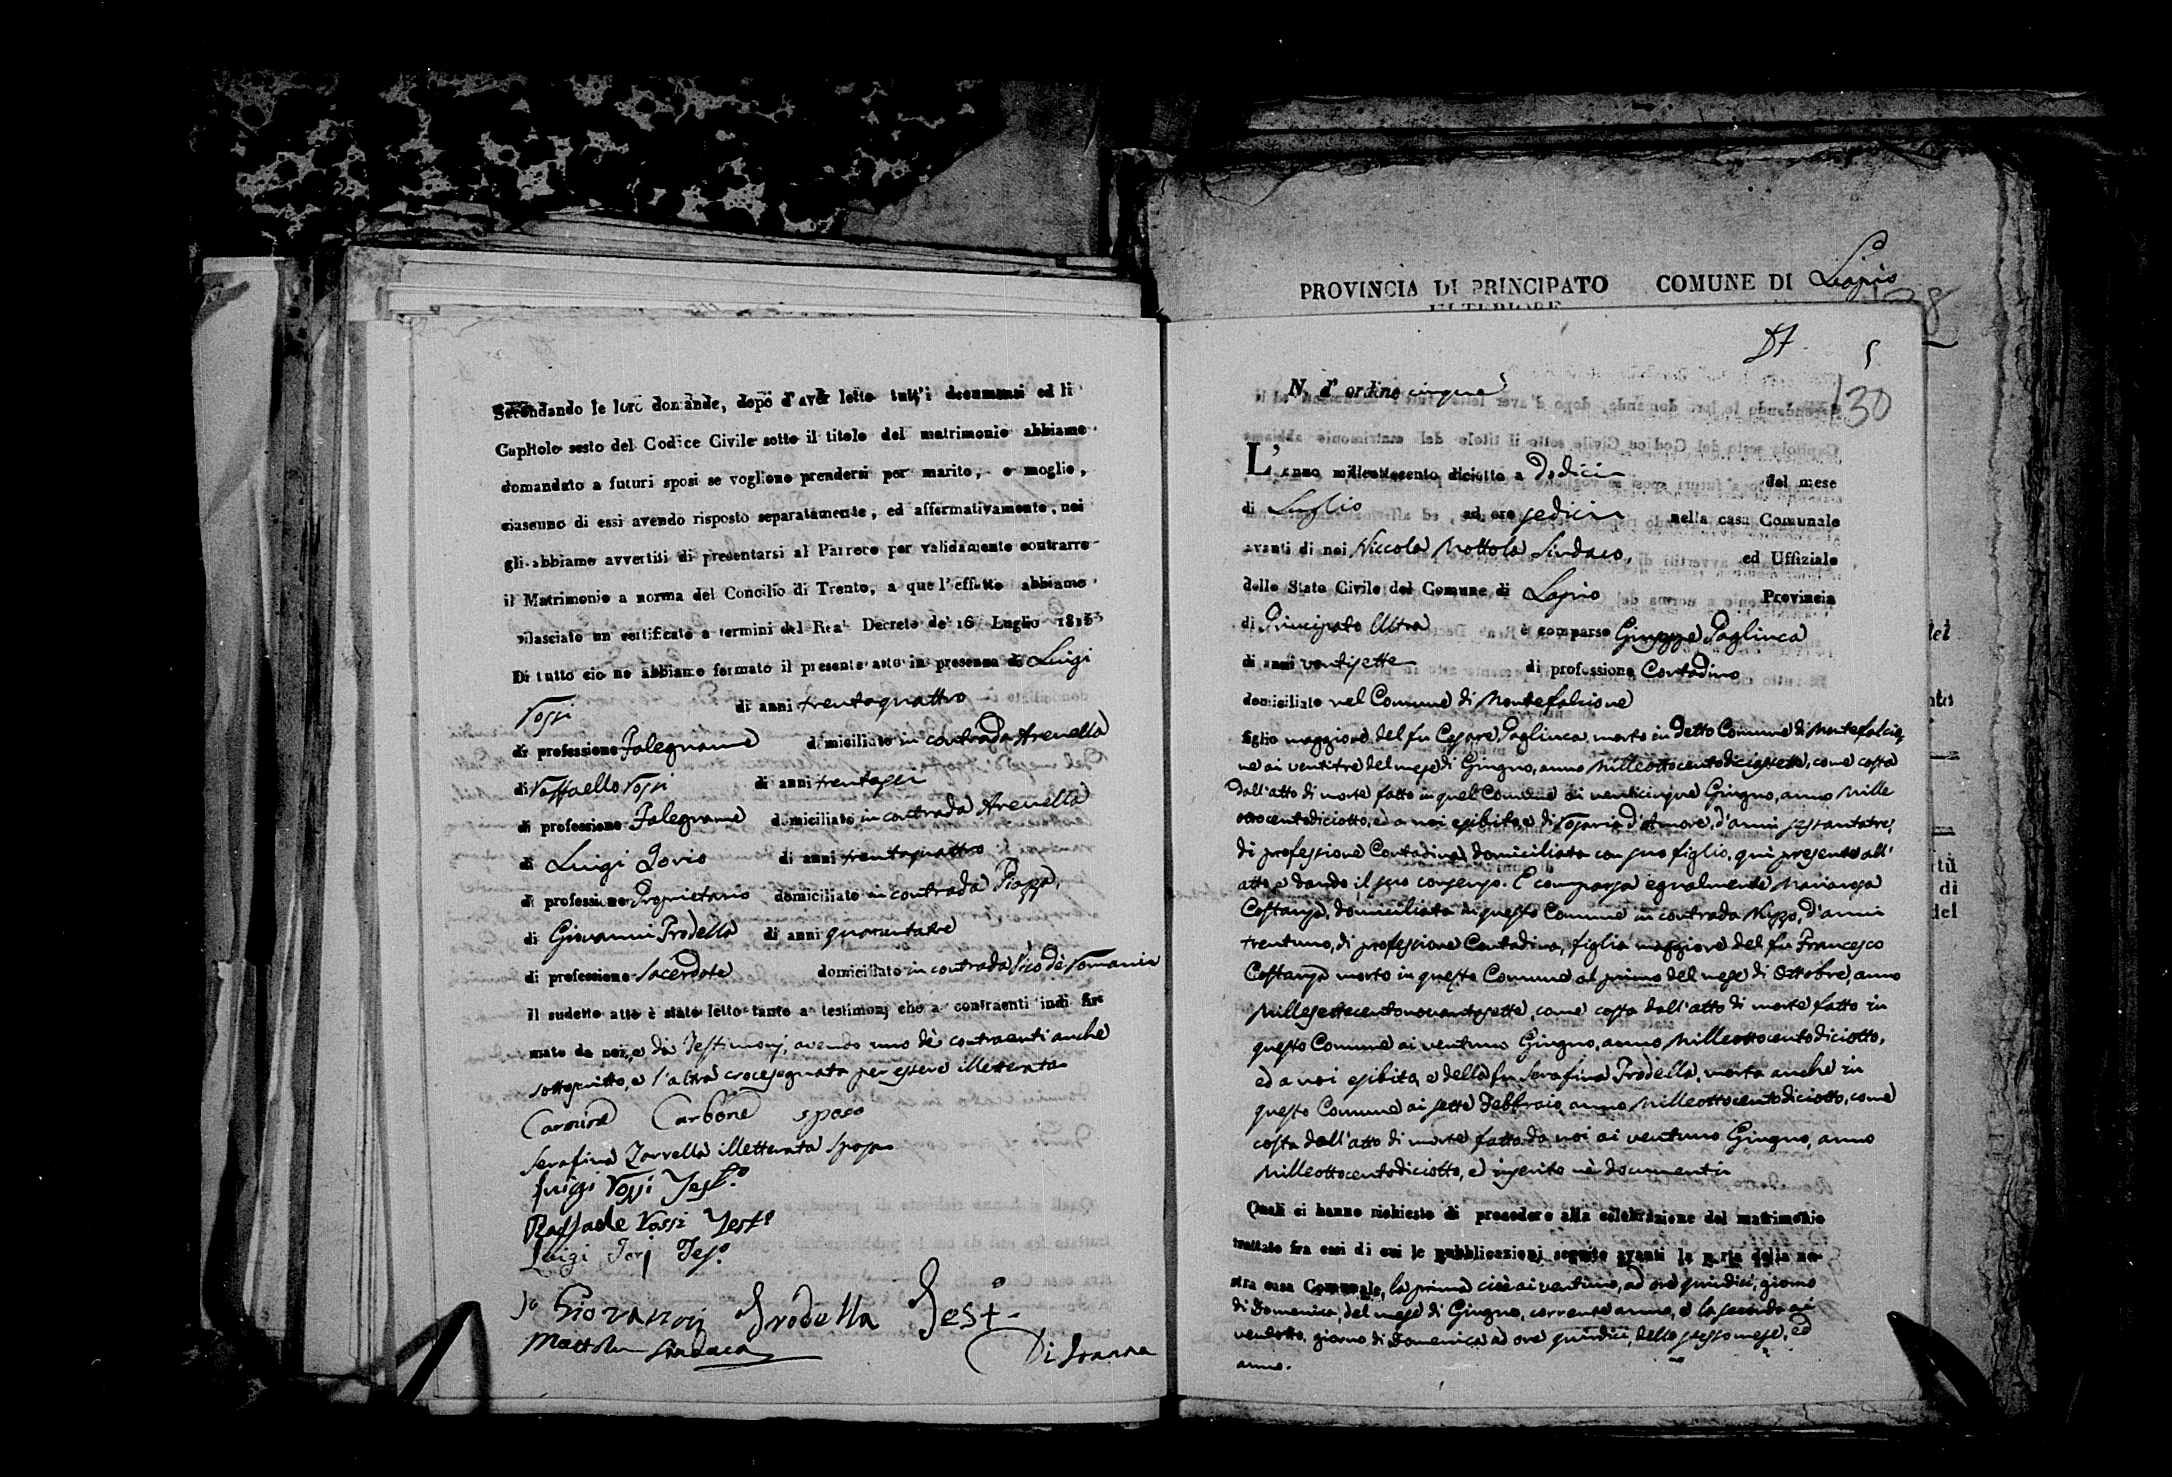 Secondando le loro domande, dopo d'aver letto tutt'i documenti ed il
Capitolo sesto del Codice Civile sotto il titolo del matrimonio abbiamo
domandato a futuri sposi se vogliono prendersi per marito, e moglie,
ciascuno di essi avendo risposto separatamente, ed affermativamente, noi
gli abbiamo avvertiti di presentarsi al Parroco per validamente contrarre
il Matrimonio a norma del Concilio di Trento, a que l'effetto abbiamo
rilasciato un certificato a termini del Real Decreto de' 16 Luglio 1815
Di tutto ciò ne abbiamo formato il presente atto in presenza di Luigi
Rossi di anni trentaquattro
di professione Falegname domiciliato in contrada Arenella
di Raffaello Rossi di anni trentasei
di professione Falegname domiciliato in contrada Arenella
di Luigi Iorio di anni trentaquattro
di professione Proprietario domiciliato in contrada Piazza,
di Giovanni Frodella di anni quarantatre
di professione Sacerdote domiciliato in contrada Vico de Romani
Il sudetto atto è stato letto tanto a' testimonj che a' contraenti indi fir
mato da noi, e da Testimonj, avendo uno dè contraenti anche
sottoscritto, e l'altra crocesegnata per essere illetterata
Carmine Carbone sposo
Serafina Zarrella illetterata sposa
Luigi Rossi Test.º
Raffaele Rossi Testº
Luigi Iorj Tesº
Giovanni Frodella Testº
Mottola Sindaco
PROVINCIA DI PRINCIPATO COMUNE DI Lapio
ULTERIORE
5
130
N. d'ordine cinque
L'anno milleottocento diciotto a Dodici del mese
di Luglio ad ore sedici nella casa Comunale
avanti di noi Niccola Mottola Sindaco, ed Uffiziale
dello Stato Civile del Comune di Lapio Provincia
di Principato Ultra è comparso Giuseppe Pagliuca
di anni ventisette di professione Contadino
domiciliato nel Comune di Montefalcione
figlio maggiore del fu Cesare Pagliuca, morto in detto Comune di Montefalcio
ne ai ventitre del mese di Giugno, anno Milleottocentodiciassette, come costa
dall'atto di morte fatto in quel Comune ai venticinque Giugno, anno Mille
ottocentodiciotto, ed a noi esibito, e di Rosaria d'Amore, d'anni sessantatre,
di professione Contadina, domiciliata con suo figlio, qui presente all'
atto e dando il suo consenso. E comparsa egualmente Mariarosa
Costanza, domiciliata in questo Comune in contrada Nuzzo, d'anni
trentuno, di professione Contadina, figlia maggiore del fu Francesco
Costanza morto in questo Comune al primo del mese di Ottobre, anno
Millesettecentonovantasette, come costa dall'atto di morte fatto in
questo Comune ai ventuno Giugno, anno Milleottocentodiciotto,
ed a noi esibito, e della fu Serafina Frodella, morta anche in
questo Comune ai sette Febbraio, anno Milleottocentodiciotto, come
costa dall'atto di morte fatto da noi ai ventuno Giugno, anno
Milleottocentodiciotto, ed inserito nè documenti
Quali ci hanno richiesto di procedere alla celebrazione del matrimonio
trattato fra essi di cui le pubblicazioni seguite avanti la porta della no-
stra casa Comunale, la prima cioè ai ventuno, ad ore quindici, giorno
di Domenica, del mese di Giugno, corrente anno, e la seconda ai
ventotto, giorno di Domenica ad ore quindici, dello stesso mese, ed
anno.